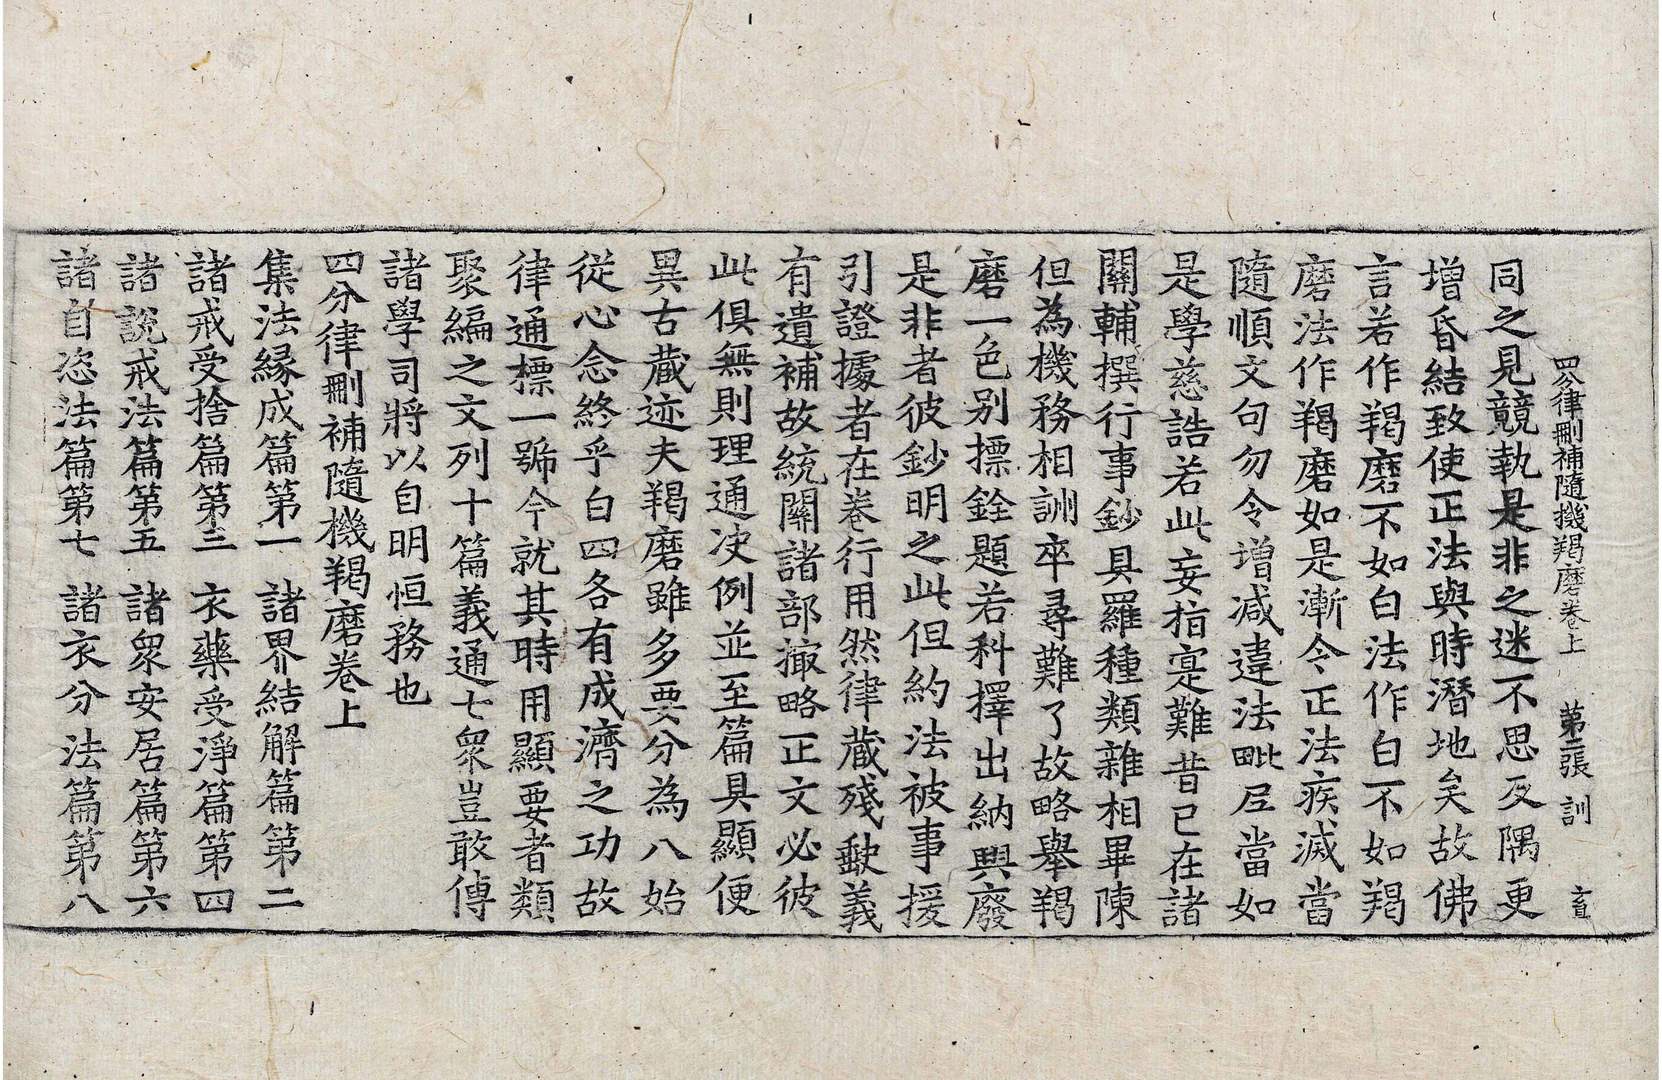 四分律刪補隨機羯磨卷上 第二張 訓
同之見競執是非之迷不思反隅更
增昏結致使正法與時潛地矣故佛
言若作羯磨不如白法作白不如羯
磨法作羯磨如是漸令正法疾滅當
隨順文句勿令增減違法毗尼當如
是學慈誥若此妄指寔難昔已在諸
關輔撰行事鈔具羅種類雜相畢陳
但為機務相訓卒尋難了故略舉羯
磨一色別摽銓題若科擇出納興廢
是非者彼鈔明之此但約法被事援
引證據者在卷行用然律藏殘缺義
有遺補故統關諸部撮略正文必彼
此俱無則理通決例並至篇具顯便
異古藏迹夫羯磨雖多要分為八始
從心念終乎白四各有成濟之功故
律通標一號今就其時用顯要者類
聚編之文列十篇義通七衆豈敢傳
諸學司將以自明恒務也
四分律刪補隨機羯磨卷上
集法緣成篇第一 諸界結解篇第二
諸戒受捨篇第三 衣藥受淨篇第四
諸說戒法篇第五 諸衆安居篇第六
諸自恣法篇第七 諸衣分法篇第八